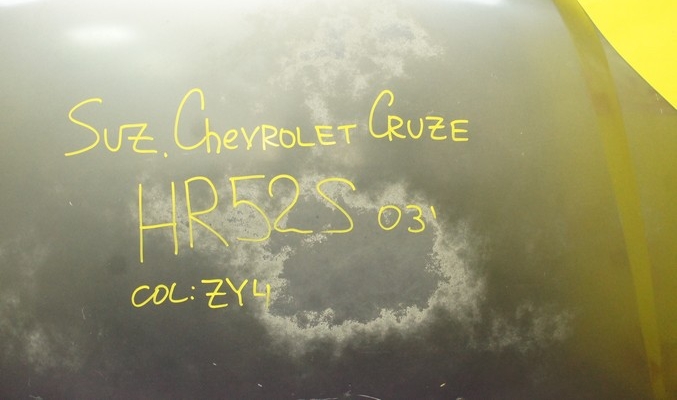 SUZ. CHEVROLET CRUZE
HR52S 03'
COL: ZY4